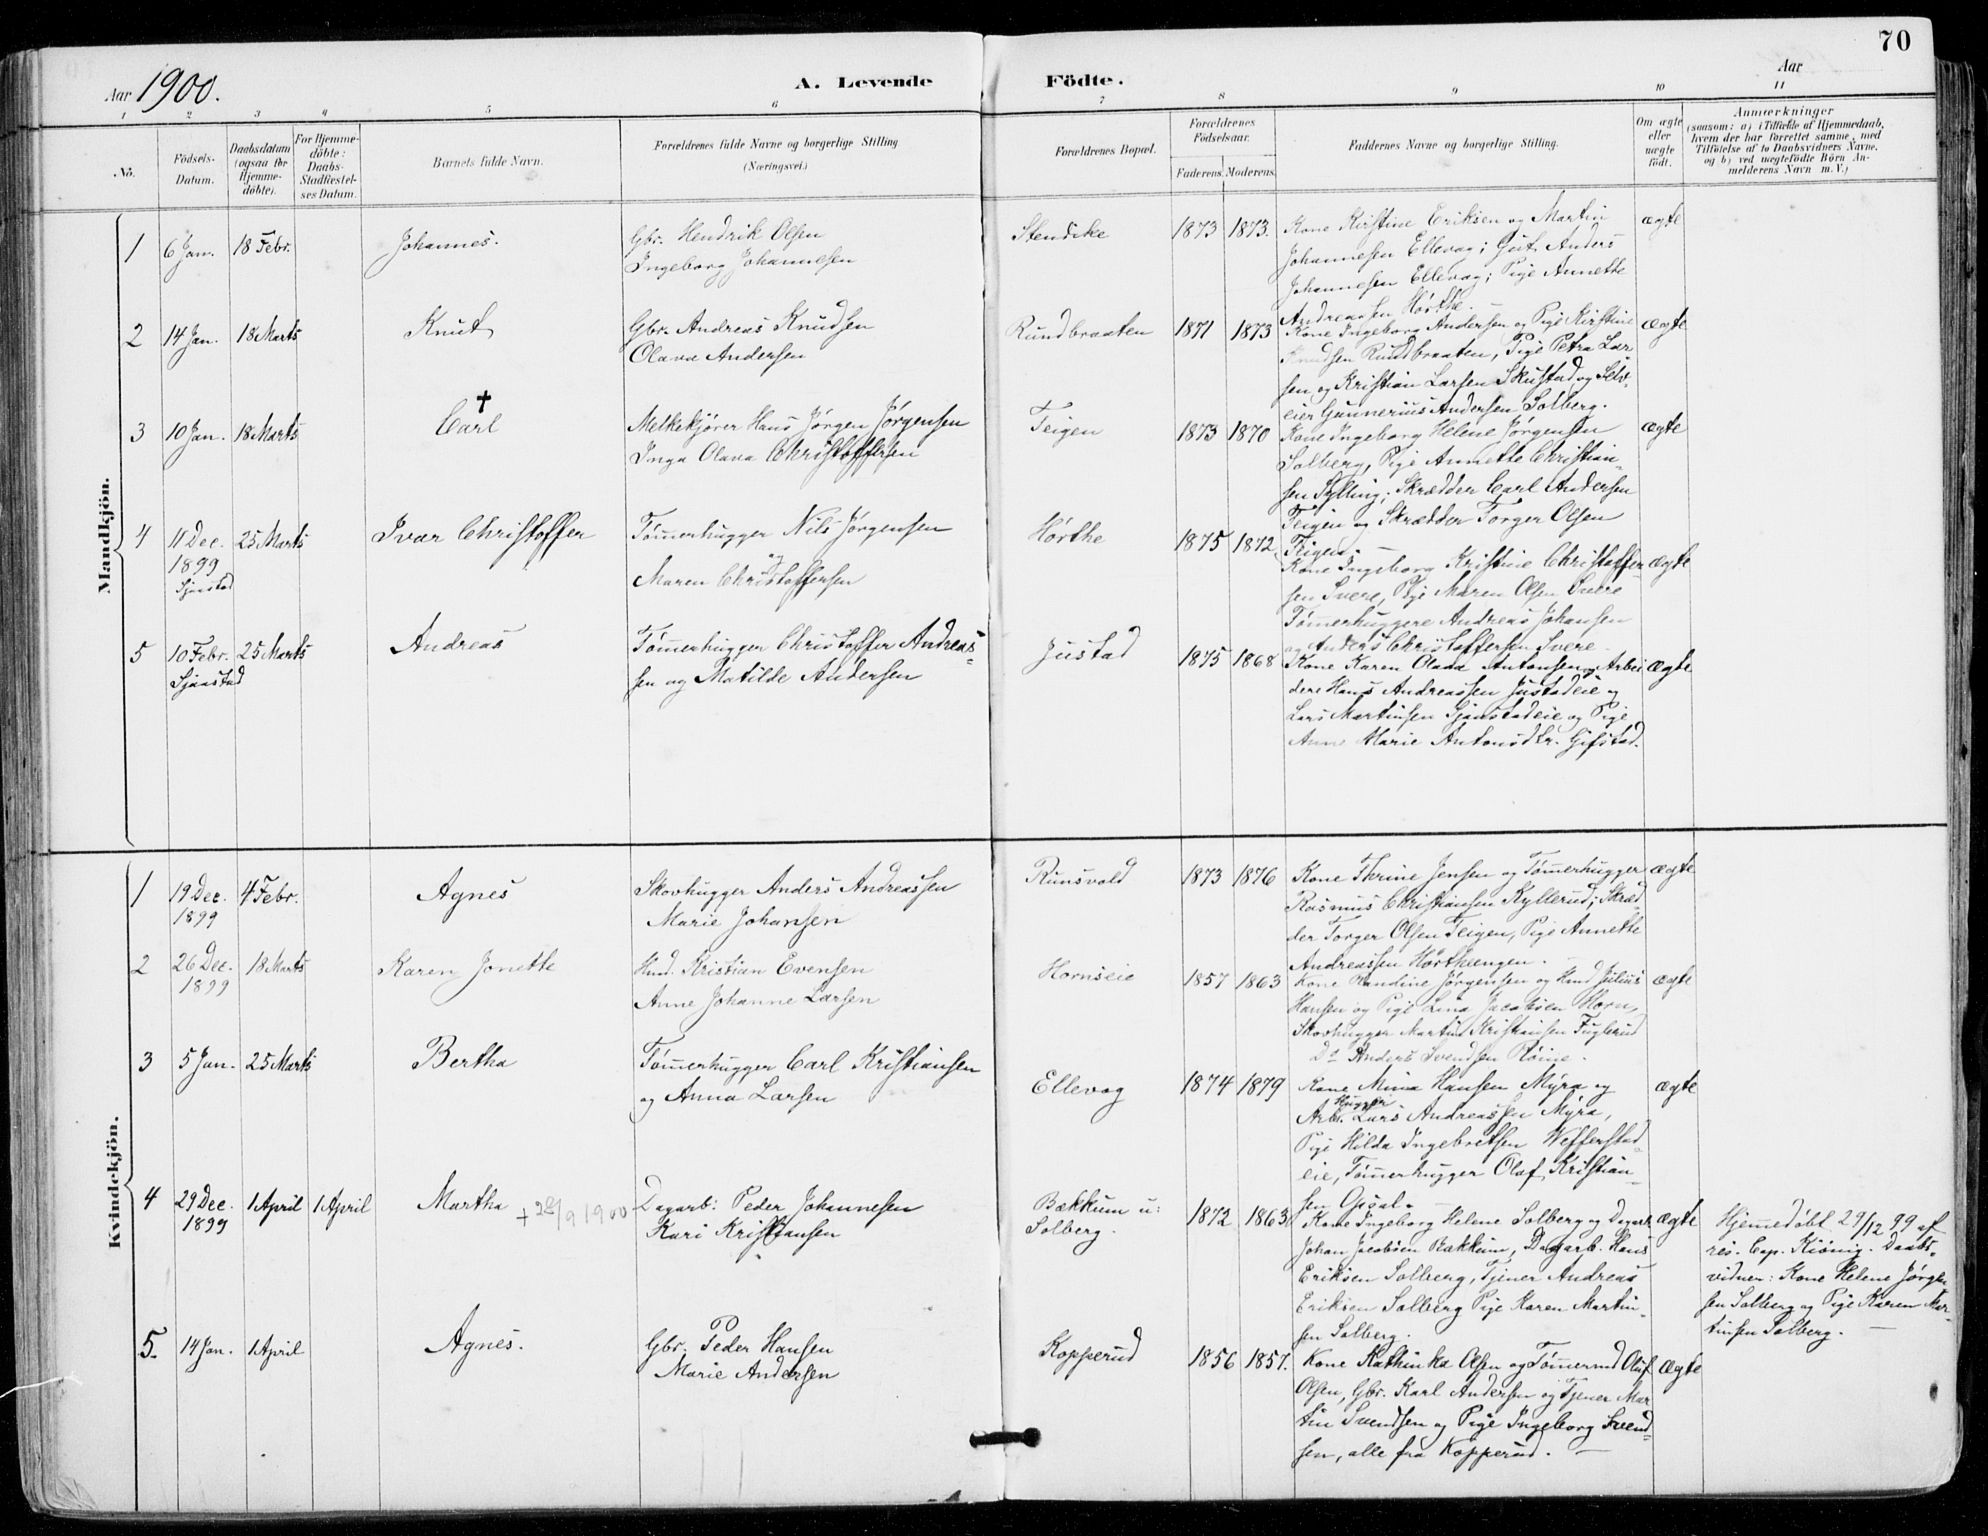 70
Aar 1900.
A. Levende Födte.
Aar
1 2 3 4 5 6 7 8 9 10 11
No.
Födsels-Datum.
Daabsdatum (ogsaa for Hjemme-döbte).
For Hjemme-döbte: Daabs-Stadfæstel-ses Datum.
Barnets fulde Navn.
Forældrenes fulde Navne og borgerlige Stilling
(Næringsvei.)
Forældrenes Bopæl.
Forældrenes Födselsaar.
Faderens. Moderens.
Faddernes Navne og borgerlige Stilling.
Om ægte eller uægte födt.
Anmærkninger
(saasom: a) i Tilfælde af Hjemmedaab,
hvem der har forrettet samme, med
Tilföielse af to Daabsvidners Navne,
og b) ved uægtefödte Börn An-
melderens Navn m. V.)
Mandkjön.
1 6 Jan. 18 Febr. Johannes.
Gbr. Hendrik Olsen
Ingeborg Johannesen
1873 1873.
Kone Kirstine Eriksen og Martin
Johannesen Ellevog; Gut Anders
Johannesen Ellevog; Pige Annette
Andreassen Hørthe. —
ægte
2 14 Jan. 18 Marts Knut
Gbr. Andreas Knudsen
Olava Andersen
Rundbraaten 1871 1873
Kone Ingeborg Andersen og Pige Kirstine
Knudsen Rundbraaten, Pige Petra Lar
sen og Kristian Larsen Skustad og Selv-
eier Gunnerius Andersen Solberg.
ægte
3 10 Jan. 18 Marts Carl †
Melkekjører Hans Jørgen Jørgensen
Inga Olava Christoffersen
Teigen 1873 1870
Kone Ingeborg Helene Jørgensen
Solberg, Pige Annette Christian-
sen Sylling; Skrædder Carl Andersen
Teigen og Skrædder Torger Olsen
Teigen. —
ægte
4 11 Dec. 1899 Sjaastad 25 Marts Ivar Christoffer
Tømmerhugger Nils Jørgensen
og
Maren Christoffersen
Hørthe 1875 1872
Kone Ingeborg Kristine Christoffer-
sen Svere, Pige Maren Olsen Svere
Tømmerhuggere Andreas Johansen
og Anders Christoffersen Svere.
ægte
5 10 Febr. Sjaastad 25 Marts Andreas
Tømmerhugger Christoffer Andreas-
sen og Matilde Andersen
Justad 1875 1868
Kone Karen Olava Antonsen, Arbei
dere Hans Andreassen Justadeie og
Lars Martinsen Sjaastadeie og Pige
Anne Marie Antonsdtr. Gifstad.
ægte
Kvindekjön.
1 19 Dec. 1899 4 Febr. Agnes
Skovhugger Anders Andreassen
Marie Johansen
Runsvold 1873 1876
Kone Thrine Jensen og Tømmerhugger
Rasmus Christiansen Kyllerud; Skræd-
der Torger Olsen Teigen, Pige Annette
Andreassen Hørtheengen. —
ægte
2 26 Dec. 1899 18 Marts Karen Jonette
Hmd. Kristian Evensen
Anne Johanne Larsen
Hornseie 1857 1863
Kone Handine Jørgensen og Hmd Julius
Hansen og Pige Lina Jacobsen Horn,
Skovhugger Martin Kristiansen Fuglerud
Do Anders Svendsen
ægte
3 5 Jan. 25 Marts Bertha
Tømmerhugger Carl Kristiansen
og Anna Larsen
Ellevog 1874 1879
Kone Mina Hansen Myra og
Hugger
Arb. Lars Andreassen Myra,
Pige Hilda Ingebretsen Wefferstad
eie, Tømmerhugger Olaf Kristian-
sen
ægte
4 29 Dec. 1899 1 April 1 April Martha + 28/9 1900
Dagarb: Peder Johannesen
Kari Kristiansen
Bækkum u:
Solberg. 1872 1863
Kone Ingeborg Helene Solberg og Dagarb
Johan Jacobsen Bækkum, Dagarb. Hans
Eriksen Solberg, Tjener Andreas
Eriksen Solberg Pige Karen Martin-
sen Solberg.
ægte
Hjemmedøbt 29/12 99 af
res. Cap. Kiønig. Daabs-
vidner: Kone Helene Jørgen
sen Solberg og Pige Karen Mar-
tinsen Solberg. —
5. 14 Jan. 1 April Agnes.
Gbr. Peder Hansen
Marie Andersen
Kopperud 1856 1857.
Kone Kathinka Olsen og Tømmermd Oluf
Olsen, Gbr. Karl Andersen og Tjener Mar
tin Svendsen og Pige Ingeborg Svend-
sen, alle fra Kopperud. —
ægte